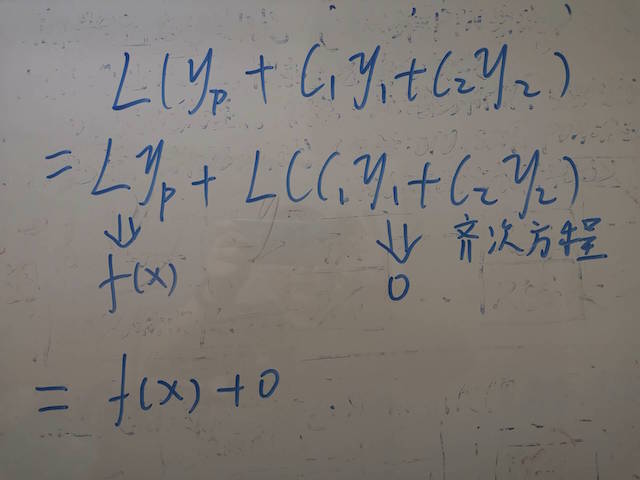 L(y_p + C_1 y_1 + C_2 y_2)
= L y_p + L(C_1 y_1 + C_2 y_2)
⇓ ⇓ 齐次方程
f(x) 0
= f(x) + 0